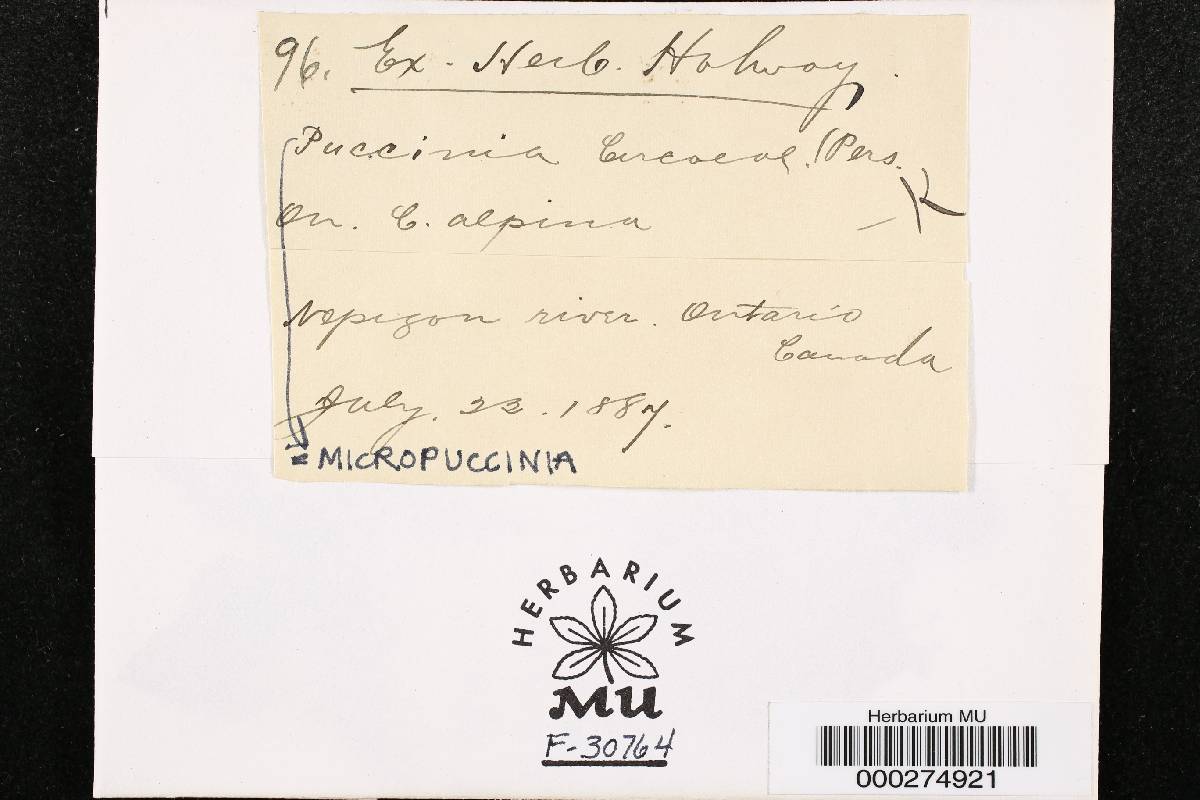 96. Ex. Herb. Holway.
Puccinia Circaeae. (Pers.
On. C. alpina
K
Nepigon river. Ontario
Canada
July. 22. 1887.
= MICROPUCCINIA
HERBARIUM
MU
F-30764
Herbarium MU
000274921